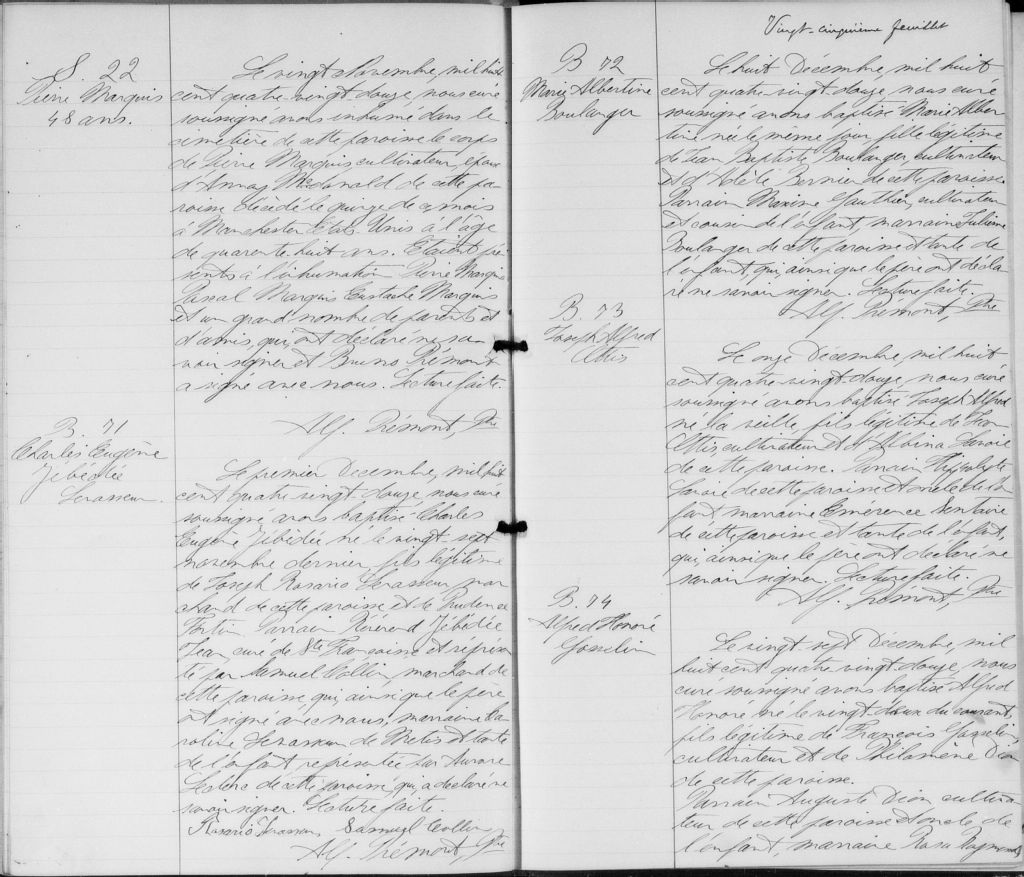 S. 22
Pierre Marquis
48 ans.
Le vingt Novembre, mil huit
cent quatre-vingt douze, nous curé
soussigné avons inhumé dans le
cimetière de cette paroisse le corps
de Pierre Marquis cultivateur, époux
d'Annas McDonald de cette pa
roisse décédé le quinze de ce mois
à Manchester États-Unis à l'âge
de quarante huit ans. Étaient pré
sents à l'inhumation Pierre Marquis
Pascal Marquis Eustache Marquis
et un grand nombre de parents et
d'amis, qui, ont déclaré ne sa
voir signer et Bruno Prémont
a signé avec nous. Lecture faite.
Alf. Prémont, Ptre
B. 71
Charles Eugène
Zébédée
Levasseur.
Le premier Décembre, mil huit
cent quatre vingt-douze, nous curé
soussigné avons baptisé Charles
Eugène Zébédée né le vingt sept
novembre dernier, fils légitime
de Joseph Rosario Levasseur mar
chand de cette paroisse et de Prudence
Fortin Parrain Révérend Zébédée
Jean, curé de Ste Françoise et représen
té par Samuel Collin, marchand de
cette paroisse, qui, ainsi que le père
ont signé avec nous, marraine Ca
roline Levasseur de Metis et tante
de l'enfant représentée par Aurore
Leclerc de cette paroisse, qui, a déclaré ne
savoir signer. Lecture faite.
Rosario Levasseur Samuel Collin
Alf. Prémont, Ptre
Vingt-cinquième feuillet
B 72
Marie Albertine
Boulanger
Le huit Décembre, mil huit
cent quatre vingt douze, nous curé
soussigné avons baptisé Marie Alber
tine née le même jour, fille légitime
de Jean Baptiste Boulanger, cultivateur
et d'Adèle Bernier de cette paroisse.
Parrain Maxime Gauthier, cultivateur
et cousin de l'enfant, marraine Julienne
Boulanger de cette paroisse et tante de
l'enfant, qui, ainsi que le père ont décla
ré ne savoir signer. Lecture faite.
Alf. Prémont, Ptre
B. 73
Joseph Alfred
Otis
Le onze Décembre, mil huit
cent quatre-vingt-douze, nous curé
soussigné avons baptisé Joseph Alfred
né la veille, fils légitime de Jean
Otis cultivateur et d'Albina Savoie
de cette paroisse. Parrain Hippolyte
Savoie de cette paroisse et oncle de l'en
fant marraine Émérence Lentaire
de cette paroisse et tante de l'enfant,
qui, ainsi que le père ont déclaré ne
savoir signer. Lecture faite.
Alf. Prémont, Ptre
B. 74
Alfred Honoré
Gosselin
Le vingt sept Décembre, mil
huit cent quatre vingt-douze, nous
curé soussigné avons baptisé Alfred
Honoré né le vingt-deux du courant,
fils légitime de François Gosselin,
cultivateur et de Philomène Dion
de cette paroisse.
Parrain Auguste Dion, cultiva
teur de cette paroisse et oncle de
l'enfant, marraine Rose Raymond,